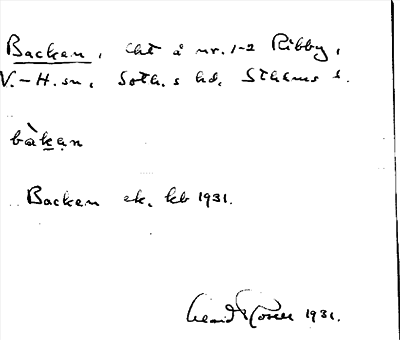 Backan, lht å nr. 1-2 Ribby,
V.-H. sn, Soth.s hd, Sthlms l.
bàkan
Backan ek. kb 1931.
1931.